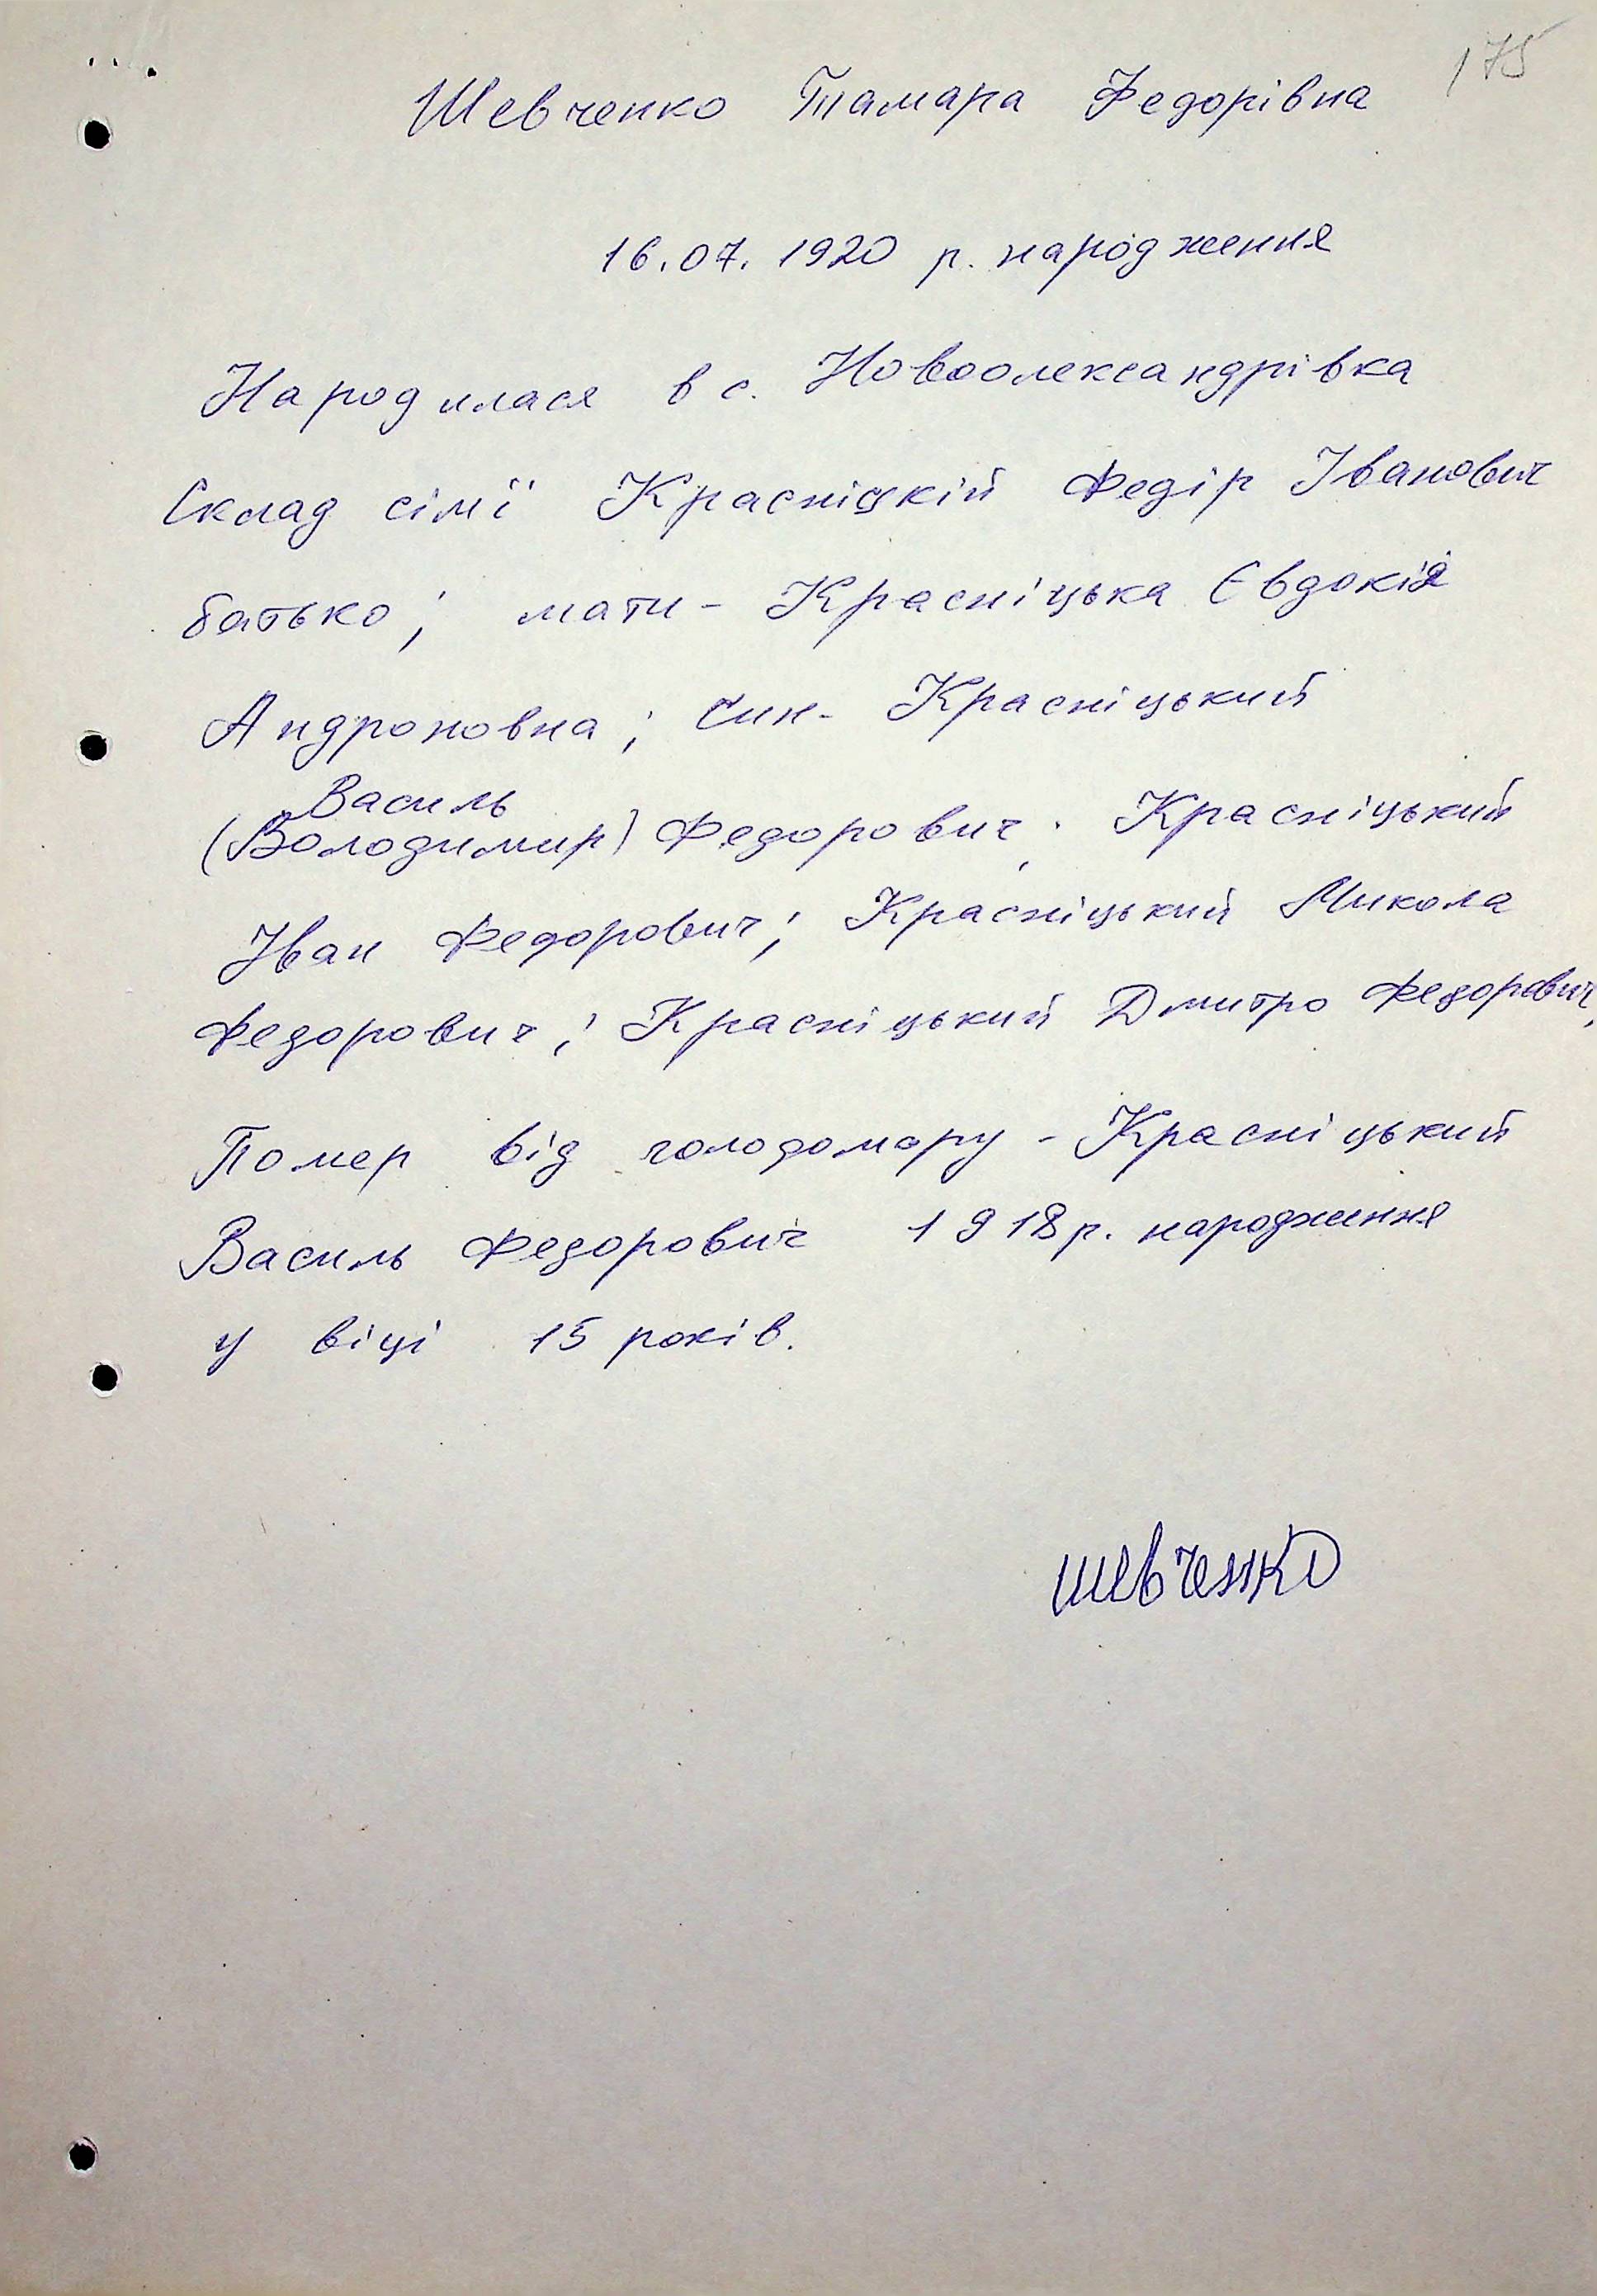 175
Шевченко Тамара Федорівна
16.07.1920 р. народження
Народилася в с. Новоолександрівка
Склад сімї Красніцкій Федір Іванович
батько; мати - Красніцька Євдокія
Андроновна; син - Красніцький
Василь
(Володимир) Федорович; Красніцький
Іван Федорович; Красніцький Микола
Федорович; Красніцький Дмитро Федорович,
Помер від голодомору - Красніцький
Василь Федорович 1918р. народження
у віці 15 років.
Шевченко